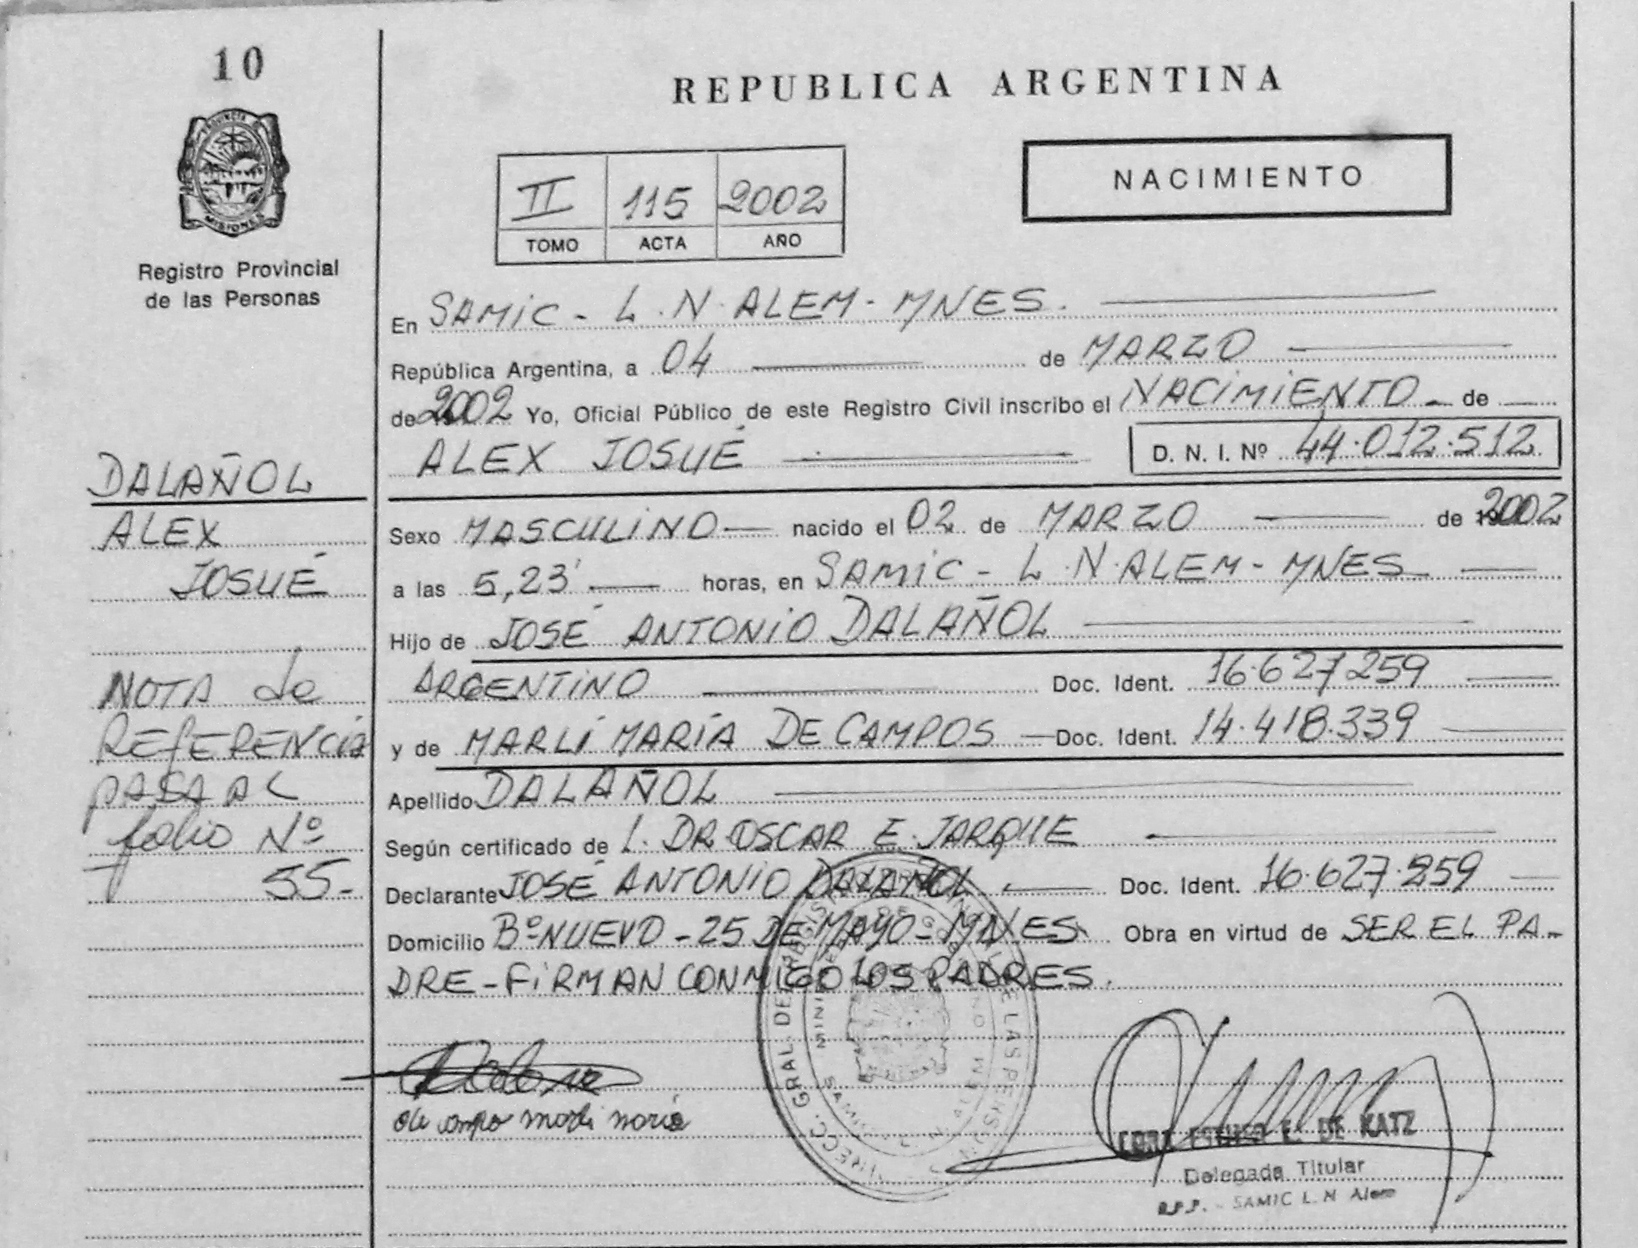 10
PROVINCIA DE
MISIONES
Registro Provincial
de las Personas
DALAÑOL
ALEX
JOSUÉ
NOTA de
REFERENCIA
PASA AL
folio Nº
55-
REPUBLICA ARGENTINA
NACIMIENTO
II 115 2002
TOMO ACTA AÑO
En SAMIC - L.N. ALEM - MNES.
República Argentina, a 04 de MARZO
de 2002 Yo, Oficial Público de este Registro Civil inscribo el NACIMIENTO de
ALEX JOSUÉ D. N. I. Nº 44.012.512
Sexo MASCULINO nacido el 02 de MARZO de 2002
a las 5,23' horas, en SAMIC - L.N. ALEM - MNES
Hijo de JOSÉ ANTONIO DALAÑOL
ARGENTINO Doc. Ident. 16.627.259
y de MARLÍ MARÍA DE CAMPOS Doc. Ident. 14.418.339
Apellido DALAÑOL
Según certificado de L. DR OSCAR E. JARQUE
Declarante JOSÉ ANTONIO DALAÑOL Doc. Ident. 16.627.259
Domicilio Bº NUEVO - 25 DE MAYO - MNES Obra en virtud de SER EL PA-
DRE - FIRMAN CONMIGO LOS PADRES.
de campo marli maria
E. DE KATZ
Delegada Titular
R.P.P. - SAMIC L. N Alem